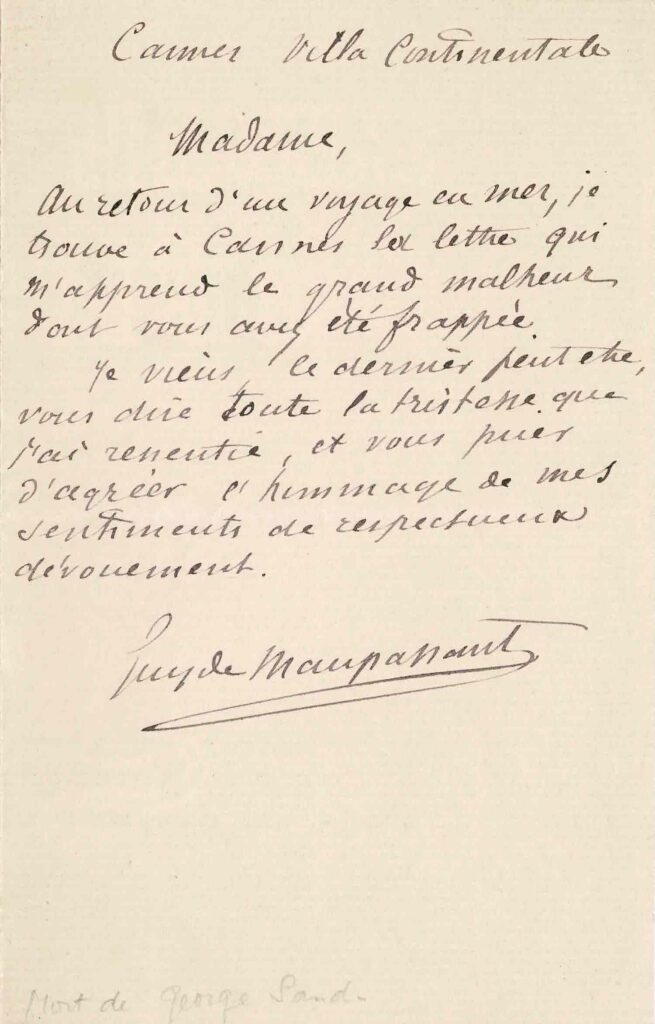 Cannes Villa Continentale
Madame,
Au retour d'un voyage en mer, je
trouve à Cannes la lettre qui
m'apprend le grand malheur
dont vous avez été frappée.
Je viens, le dernier peut etre,
vous dire toute la tristesse que
j'ai ressentie, et vous prier
d'agréer l'hommage de mes
sentiments de respectueux
dévouement.
Guy de Maupassant
Mort de George Sand.